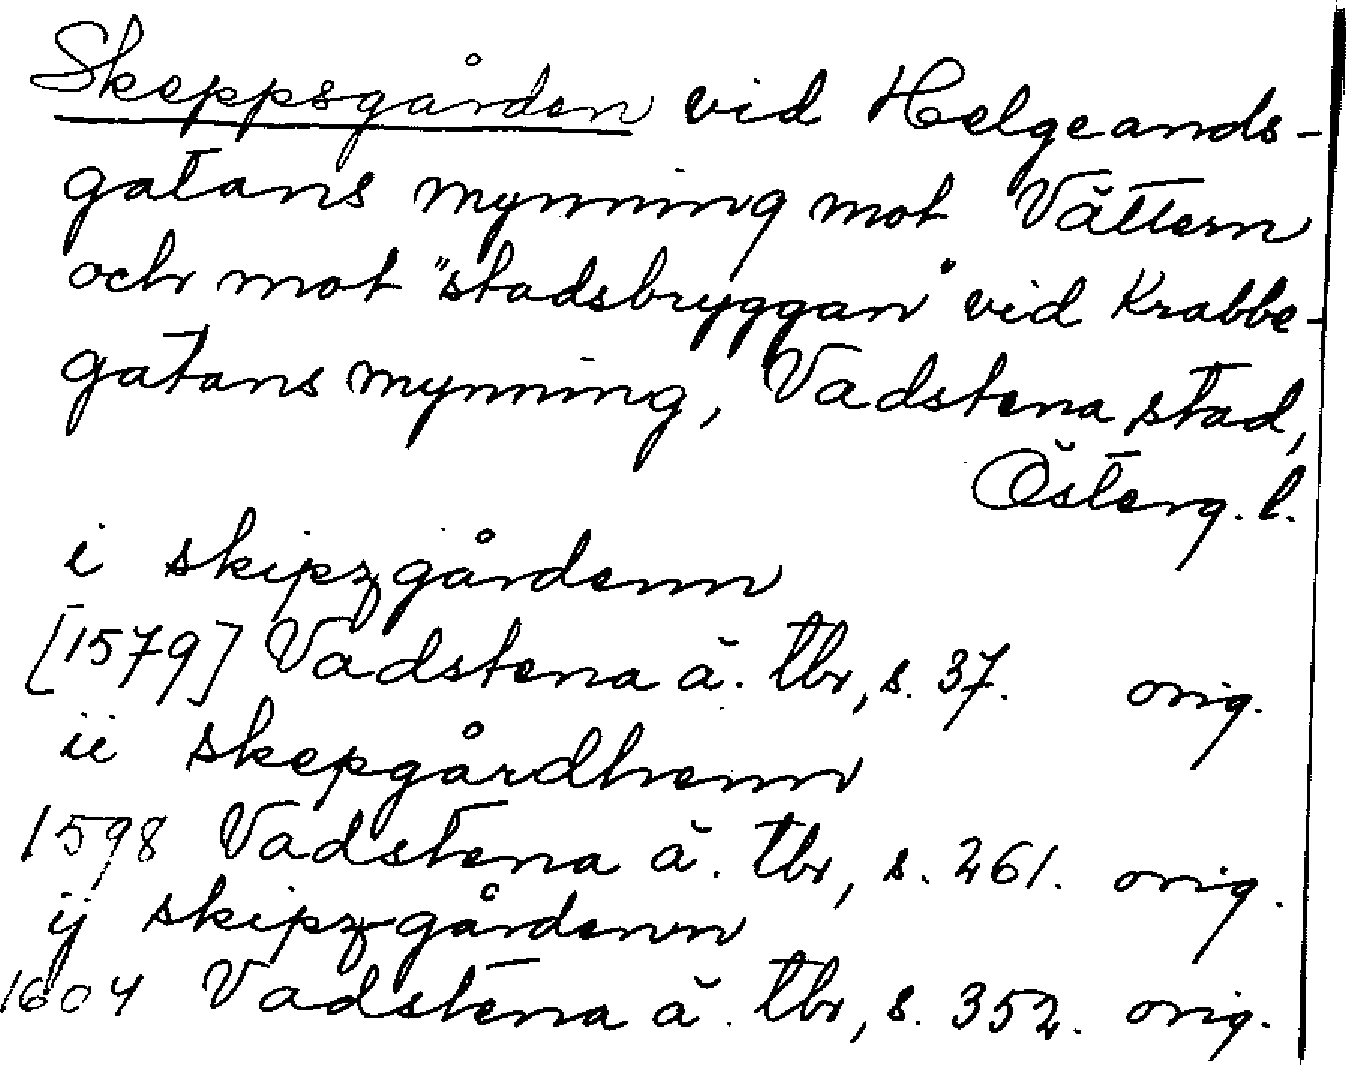 Skeppsgården vid Helgeands-
gatans mynning mot Vättern
och mot "stadsbryggan" vid Krabbe-
gatans mynning, Vadstena stad,
Österg. l.
i skipzgårdenn
[1579] Vadstena ä. tbr, s. 37. orig.
ii skepgårdhenn
1598 Vadstena ä. tbr, s. 261. orig.
ij skipzgårdenn
1604 Vadstena ä. tbr, s. 352. orig.